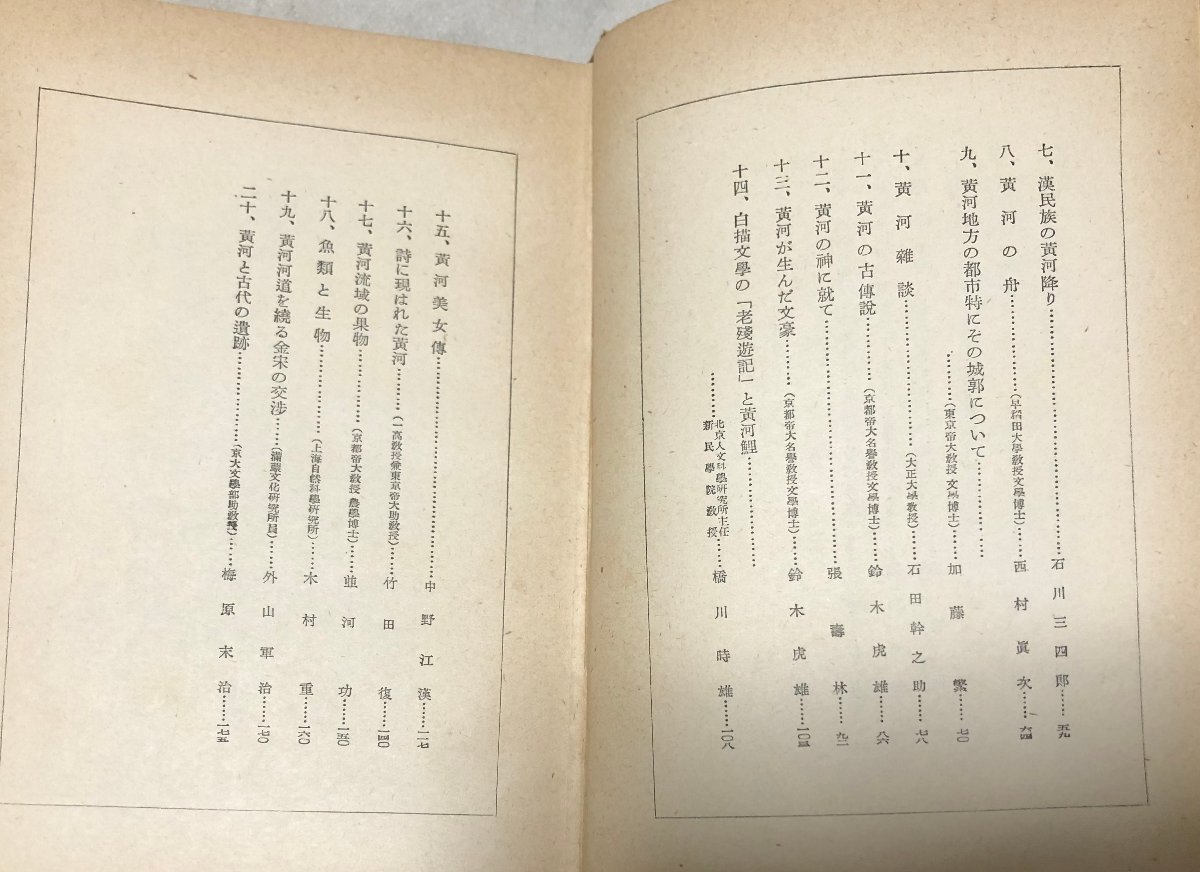 七、漢民族の黃河降り…………石川三四郎……五九
八、黃河の舟…………(早稻田大學敎授文學博士)……西村眞次……六四
九、黃河地方の都市特にその城郭について…………
…………(東京帝大敎授文學博士)……加藤繁……七〇
十、黃河雜談…………(大正大學敎授)……石田幹之助……七八
十一、黃河の古傳說…………(京都帝大名譽敎授文學博士)……鈴木虎雄……八六
十二、黃河の神に就て…………張壽林……九二
十三、黃河が生んだ文豪…………(京都帝大名譽敎授文學博士)……鈴木虎雄……一〇三
十四、白描文學の「老殘遊記」と黃河鯉…………
…………北京人文科學硏究所主任
新民學院敎授……橋川時雄……一〇八
十五、黃河美女傳…………中野江漢……一二七
十六、詩に現はれた黃河…………(一高敎授兼東京帝大助敎授)……竹田復……一四〇
十七、黃河流域の果物…………(京都帝大敎授農學博士)……並河功……一五〇
十八、魚類と生物…………(上海自然科學硏究所)……木村重……一六〇
十九、黃河河道を繞る金宋の交涉……(滿蒙文化硏究所員)……外山軍治……一七〇
二十、黃河と古代の遺跡…………(京大文學部助敎授)……梅原末治……一七五